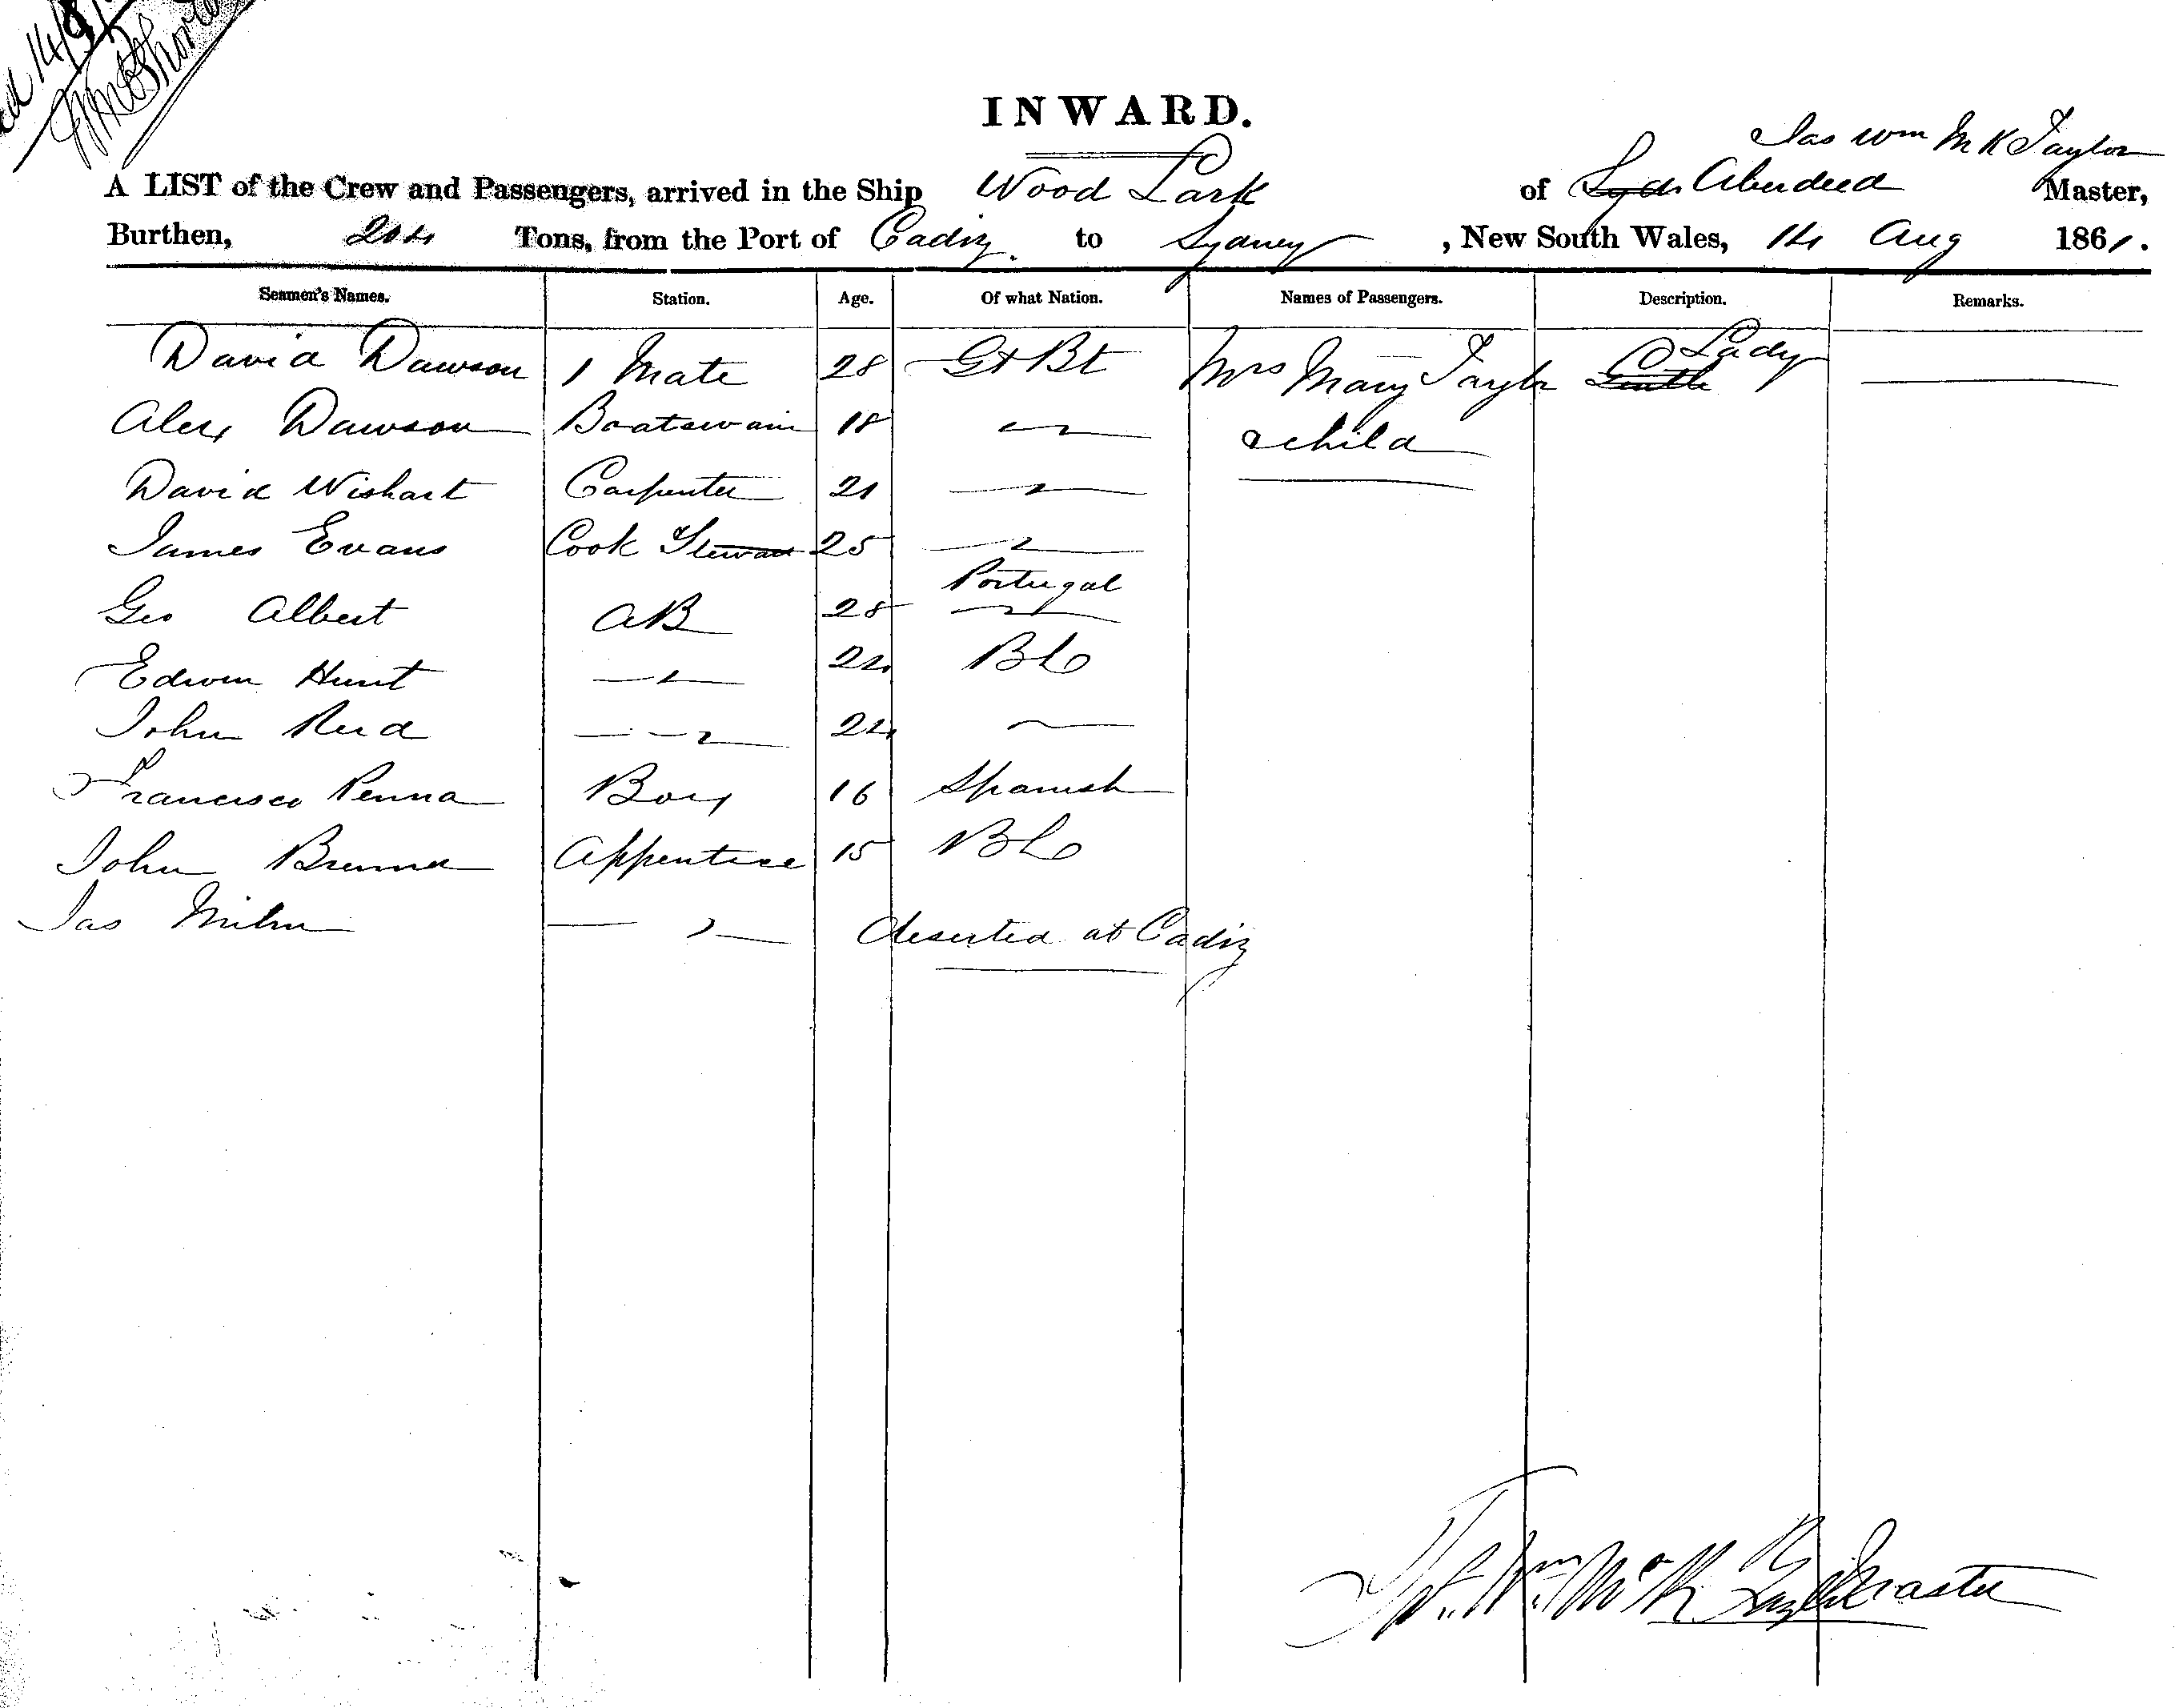 14/8/
INWARD.
Jas Wm McK Taylor
A LIST of the Crew and Passengers, arrived in the Ship Wood Lark of Aberdeed Master,
Burthen, 204 Tons, from the Port of Cadiz to Sydney, New South Wales, 14 Aug 1861.
Seamen's Names. Station. Age. Of what Nation. Names of Passengers. Description. Remarks.
David Dawson 1 Mate 28 Gt Bt Mrs Mary Taylor Lady
Alex Dawson Boatswain 18 &child
David Wishart Carpenter 21
James Evans Cook Steward 25
Geo Albert AB 28 Portugal
Edwin Hunt 24
John Reid 24
Francisco Penna Boy 16 Spanish
John Appentice 15
Jas Milne deserted at Cadiz
Js. Wm McK Taylor Master